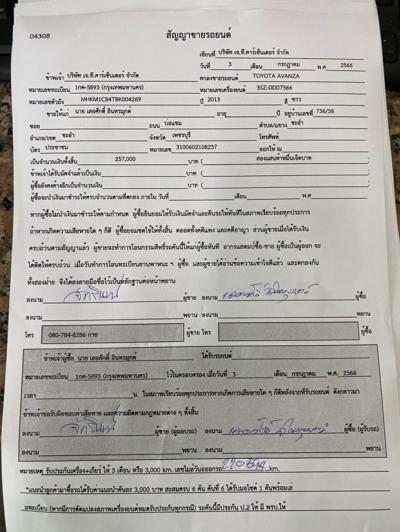 04308
สัญญาขายรถยนต์
เขียนที่ บริษัท เจ.ที.คาร์เซ็นเตอร์ จำกัด
วันที่ 3 เดือน กรกฎาคม พ.ศ 2566
ข้าพเจ้า บริษัท เจ.ที.คาร์เซ็นเตอร์ จำกัด ตกลงขายรถยนต์ TOYOTA AVANZA
หมายเลขทะเบียน 1กค-5893 (กรุงเทพมหานคร) หมายเลขเครื่องยนต์ 3SZ-DDD7566
หมายเลขตัวถัง MHKM1CB4TBK004269 ปี 2013 สี ขาว
ขายให้แก่ นาย เลอศักดิ์ อินทรมุกด์ อายุ ปี อยู่บ้านเลขที่ 736/38
ซอย ถนน บอแขม ตำบล/แขวง ชะอำ
อำเภอ/เขต ชะอำ จังหวัด เพชรบุรี โทรศัพท์
บัตร ประชาชน หมายเลข 3100602108237 ออกให้ ณ
เป็นจำนวนเงินทั้งสิ้น 257,000 บาท ( สองแสนห้าหมื่นเจ็ดพันบาท )
ข้าพเจ้าได้รับมัดจำแล้วเป็นเงิน บาท ( )
ผู้ซื้อยังคงค้างอีกเป็นจำนวนเงิน บาท ( )
ผู้ซื้อจะนำเงินมาชำระให้ครบจำนวนตามที่ตกลง ภายใน วันที่ เดือน พ.ศ
หากผู้ซื้อไม่นำเงินมาชำระให้ตามกำหนด ผู้ซื้อยินยอมให้ริบเงินมัดจำและคืนรถให้ทันทีในสภาพเรียบร้อยทุกประการ
ถ้าหากเกิดความเสียหายใด ๆ ก็ดี ผู้ซื้อยอมชดใช้ให้ทั้งสิ้น ตลอดทั้งคดีแพ่ง และคดีอาญา ส่วนผู้ขายเมื่อได้รับเงิน
ครบถ้วนตามสัญญาแล้ว ผู้ขายจะทำการโอนกรรมสิทธิ์รถคันนี้ให้แก่ผู้ซื้อทันที
ทั้งสองฝ่าย จึงได้ลงลายมือชื่อไว้เป็นหลักฐานต่อหน้าพยาน
ลงนาม ผู้ขาย ลงนาม ผู้ซื้อ
ลงนาม พยาน ลงนาม พยาน
โทร 080-784-8286 กาย ผู้ขาย โทร ผู้ซื้อ
ข้าพเจ้าผู้ซื้อ นาย เลอศักดิ์ อินทรมุกด์ ได้รับรถยนต์
หมายเลขทะเบียน 1กค-5893 (กรุงเทพมหานคร) ไว้ในครอบครอง เมื่อวันที่ 3 เดือน กรกฎาคม พ.ศ 2566
เวลา น. ในสภาพเรียบร้อยทุกประการหากเกิดการเสียหายใด ๆ ก็ดีหลังจากที่รับรถยนต์ ดังกล่าวมา
ข้าพเจ้าขอรับผิดชอบความเสียหาย และความผิดตามกฎหมายต่าง ๆ ทั้งสิ้น
ลงนาม ผู้ขาย (ผู้มอบรถ) ลงนาม ผู้ซื้อ (ผู้รับรถ)
ลงนาม พยาน ลงนาม พยาน
หมายเหตุ รับประกันเครื่องเกียร์ ให้ 3 เดือน หรือ 3,000 km. เลขไมล์วันออกรถ km.
*แนะนำลูกค้ามาซื้อรถได้รับค่าแนะนำคันละ 3,000 บาท สะสมครบ 6 คัน คันที่ 6 ได้รับมอไซค์ 1 คันพร้อมเล่